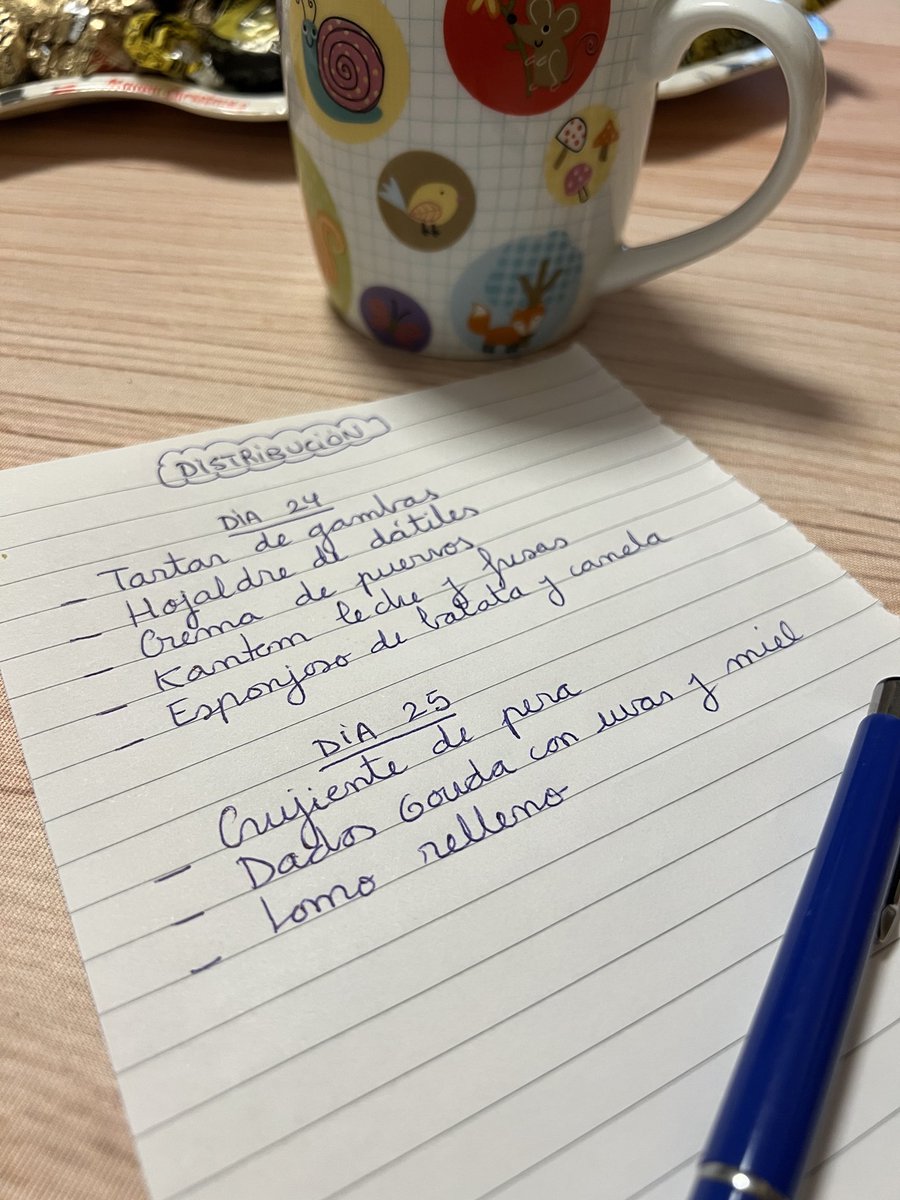 DISTRIBUCIÓN
DIA 24
- Tartar de gambas
- Hojaldre de dátiles
- Crema de puerros
- Kantom leche y fresas
- Esponjoso de batata y canela
DIA 25
- Crujiente de pera
- Dados Gouda con uvas y miel
- Lomo relleno